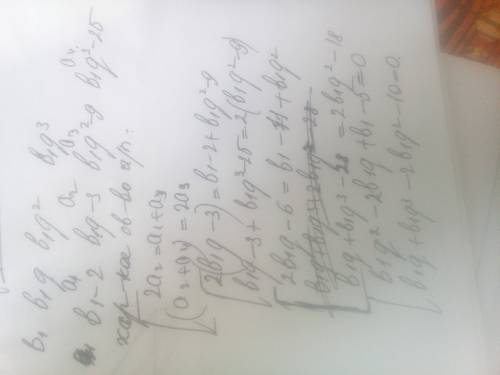 b₁ b₁q b₁q² b₁q³
a₁ a₂ a₃ a₄
b₁-2 b₁q-3 b₁q²-9 b₁q³-25
хар-ка св-во а/п:
2a₂=a₁+a₃
a₂+a₄=2a₃
2(b₁q-3)=b₁-2+b₁q²-9
b₁q-3+b₁q³-25=2(b₁q²-9)
2b₁q-6=b₁-11+b₁q²
b₁q+b₁q³-28=2b₁q²-18
b₁q²-2b₁q+b₁-5=0
b₁q+b₁q³-2b₁q²-10=0